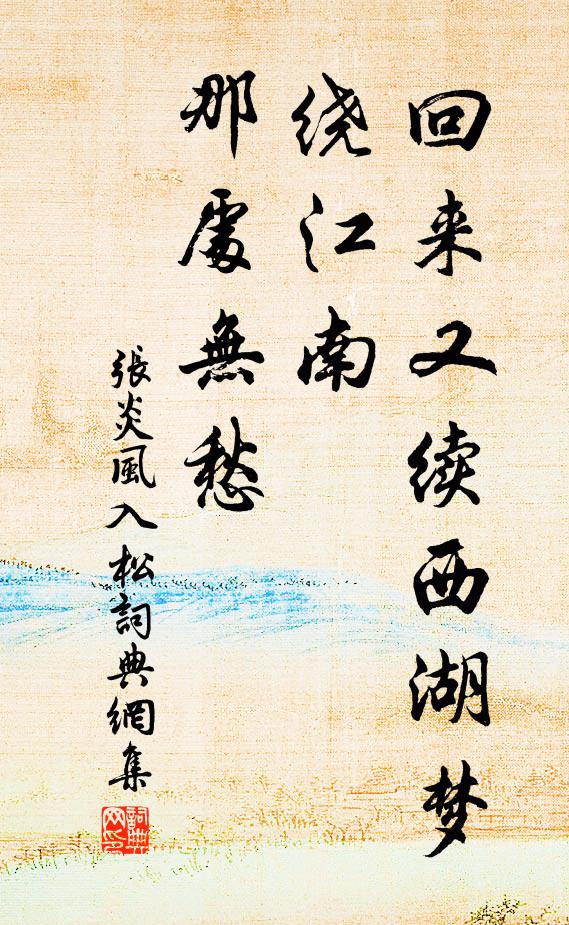 回来又续西湖梦
绕江南
那處無愁
張炎風入松詞典網集
詞典网印